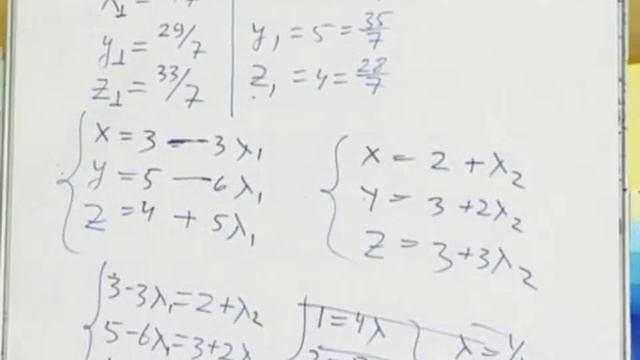 y⊥ = 29/7
z⊥ = 33/7
y₁ = 5 = 35/7
z₁ = 4 = 28/7
x = 3 — 3λ₁
y = 5 — 6λ₁
z = 4 + 5λ₁
x = 2 + λ₂
y = 3 + 2λ₂
z = 3 + 3λ₂
3 - 3λ₁ = 2 + λ₂
5 - 6λ₁ = 3 + 2λ
1 = 4λ